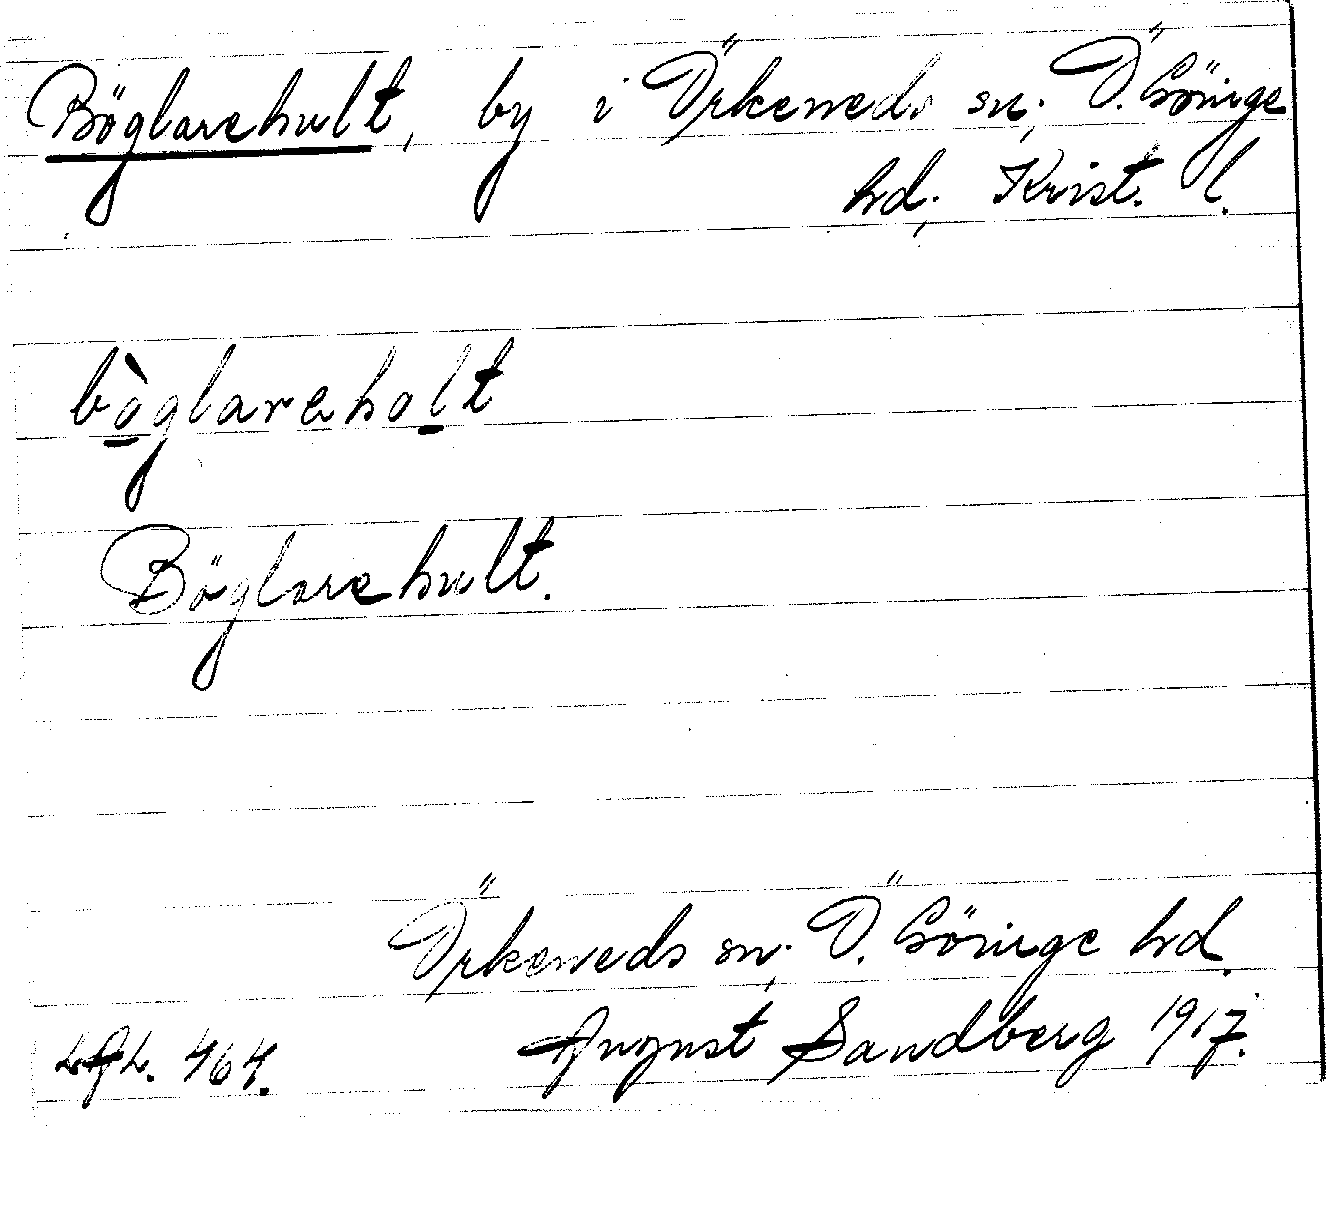 Böglarehult, by i Örkeneds sn, Ö. Göinge
hd, Krist. l.
bòglareholt
Böglarehult.
Örkeneds sn, Ö. Göinge hd.
August Sandberg 1917.